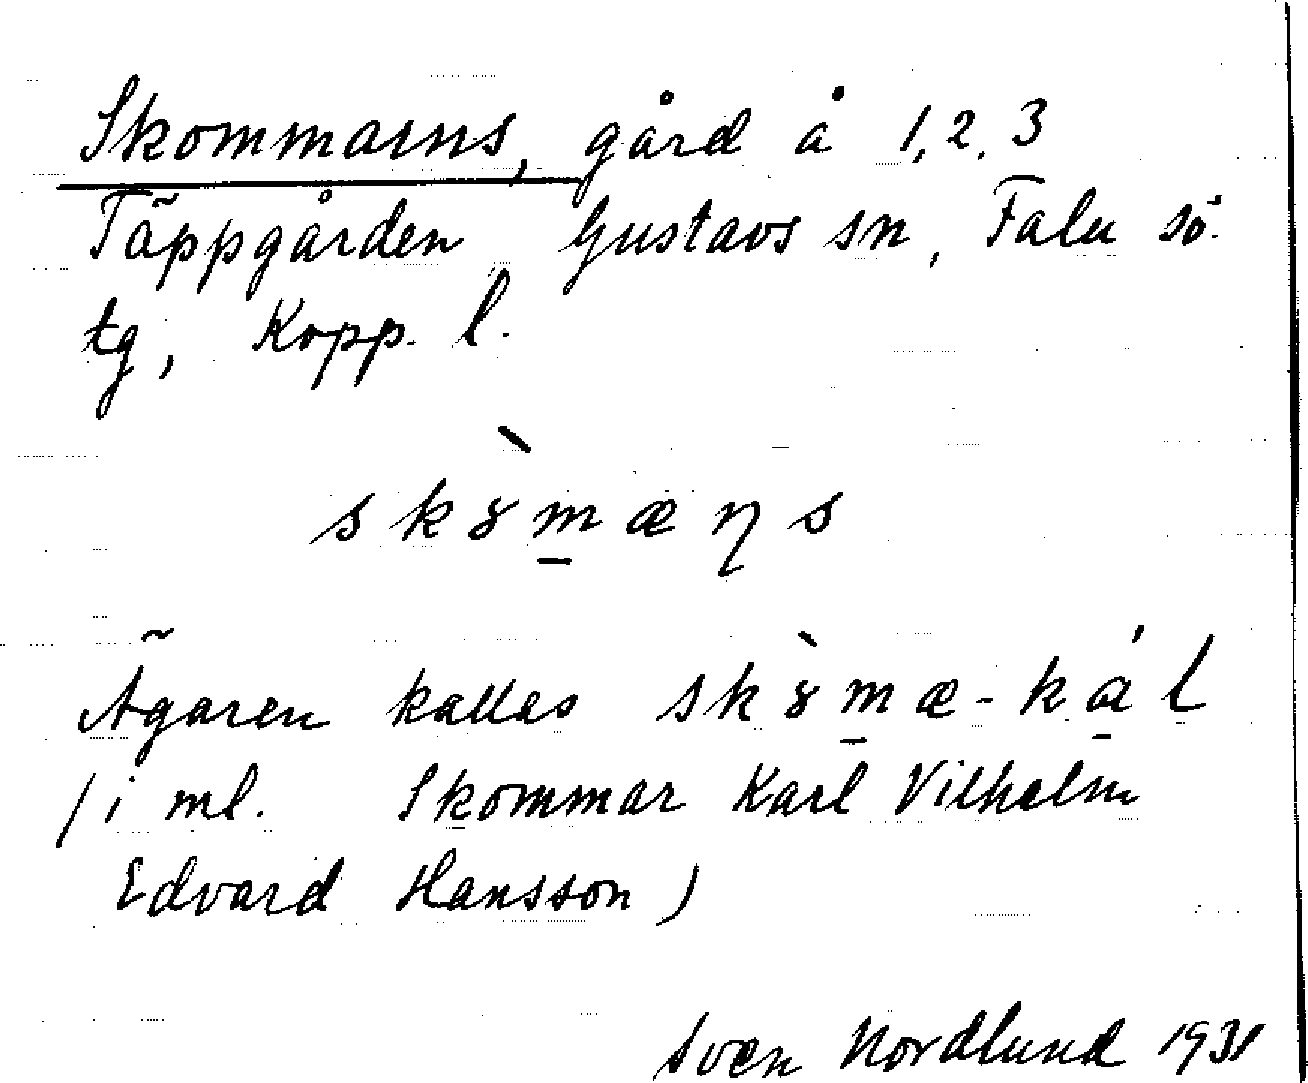 Skommarns, gård å 1, 2, 3
Täppgården Gustavs sn, Falu sö.
tg, Kopp. l.
skȣ̀m̲æŋs
Ägaren kallas skȣ̀m̲æ-ká̲l
(i ml. Skommar Karl Vilhelm
Edvard Hansson)
Sven Nordlund 1931